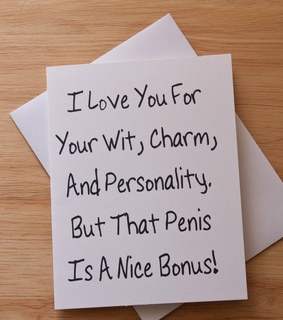 I Love You For
Your Wit, Charm,
And Personality.
But That Penis
Is A Nice Bonus!